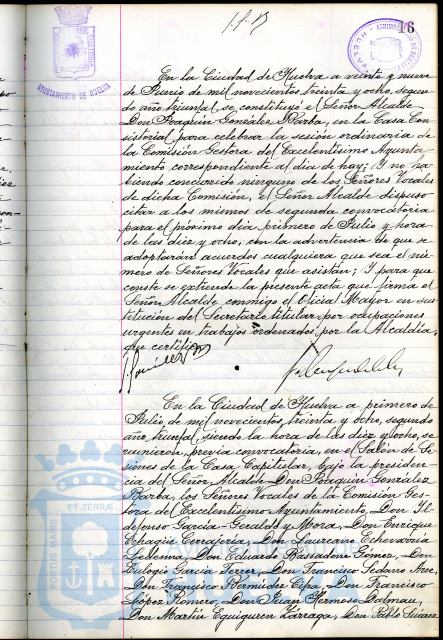 16
AYUNTAMIENTO DE HUELVA
En la Ciudad de Huelva a veinte y nueve
de Junio de mil novecientos treinta y ocho, segun-
do año triunfal, se constituyó el Señor Alcalde
Don Joaquín González Barba, en la Casa Con-
sistorial para celebrar la sesión ordinaria de
la Comisión Gestora del Excelentísimo Ayunta-
miento correspondiente al día de hoy; Y no ha-
biendo concurrido ninguno de los Señores Vocales
de dicha Comisión, el Señor Alcalde dispuso
citar a los mismos de segunda convocatoria
para el próximo día primero de Julio y hora
de las diez y ocho, con la advertencia de que se
adoptarán acuerdos cualquiera que sea el nú-
mero de Señores Vocales que asistan; Y para que
conste se extiende la presente acta que firma el
Señor Alcalde conmigo el Oficial Mayor en sus-
titución del Secretario titular por ocupaciones
urgentes en trabajos ordenados por la Alcaldía,
que certifico.
En la Ciudad de Huelva a primero de
Julio de mil novecientos treinta y ocho, segundo
año triunfal, siendo la hora de las diez y ocho, se
reunieron, previa convocatoria, en el Salón de Se-
siones de la Casa Capitular, bajo la presiden-
cia del Señor Alcalde Don Joaquín González
Barba, los Señores Vocales de la Comisión Ges-
tora del Excelentísimo Ayuntamiento, Don Il-
defonso García-Geraldo y Mora, Don Enrique
Cerrajería, Don Laureano Echevarría
Ledesma, Don Eduardo Bassadone Gómez, Don
Eulogio García Ferrer, Don Francisco Sedano Arce,
Don Francisco Bermúdez Cepa, Don Francisco
López Romero, Don Juan Hermoso Dolmau,
Don Martín Eguiguren Zárraga, Don Pablo Suárez
PORTUS MARIS
ET TERRÆ